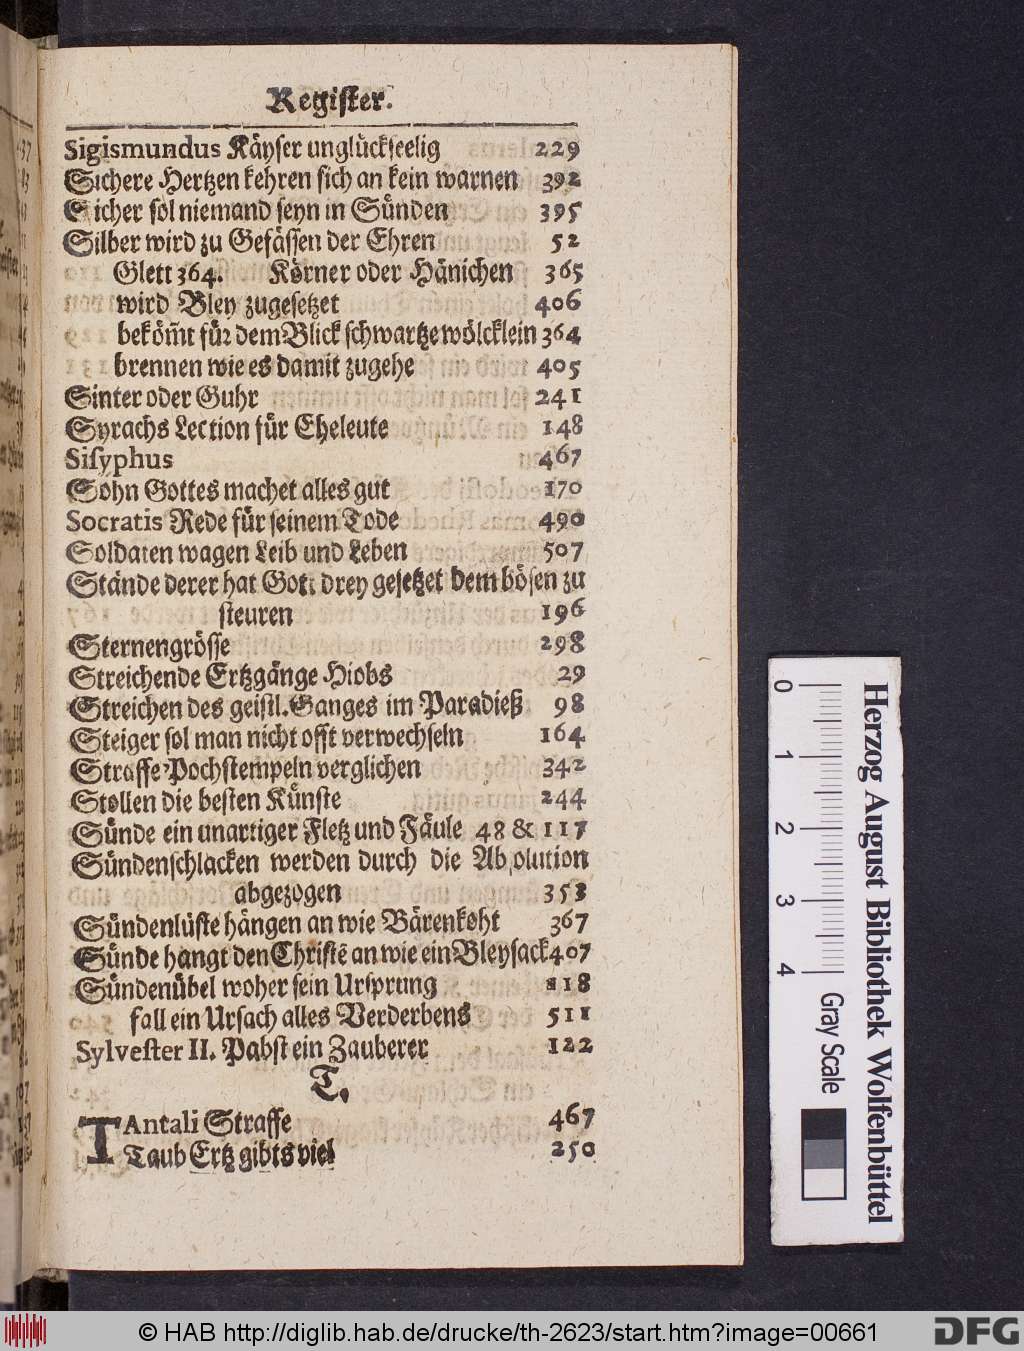 Register.
Sigismundus Käyser unglückseelig 229
Sichere Hertzen kehren sich an kein warnen 392
Sicher sol niemand seyn in Sünden 395
Silber wird zu Gefässen der Ehren 52
Glett 364. Körner oder Hänichen 365
wird Bley zugesetzet 406
beköm̃t für dem Blick schwartze wölcklein 364
brennen wie es damit zugehe 405
Sinter oder Guhr 241
Syrachs Lection für Eheleute 148
Sisyphus 467
Sohn Gottes machet alles gut 170
Socratis Rede für seinem Tode 490
Soldaten wagen Leib und Leben 507
Stände derer hat Gott drey gesetzet dem bösen zu
steuren 196
Sternengrösse 298
Streichende Ertzgänge Hiobs 29
Streichen des geistl. Ganges im Paradieß 98
Steiger sol man nicht offt verwechseln 164
Straffe Pochstempeln verglichen 342
Stollen die besten Künste 244
Sünde ein unartiger Fletz und Fäule 48 & 117
Sündenschlacken werden durch die Absolution
abgezogen 353
Sündenlüste hängen an wie Bärenkoht 367
Sünde hangt den Christē an wie ein Bleysack 407
Sündenübel woher sein Ursprung 118
fall ein Ursach alles Verderbens 511
Sylvester II. Pabst ein Zauberer 122
T.
TAntali Straffe 467
Taub Ertz gibts viel 250
0 1 2 3 4
Gray Scale
Herzog August Bibliothek Wolfenbüttel
© HAB http://diglib.hab.de/drucke/th-2623/start.htm?image=00661
DFG